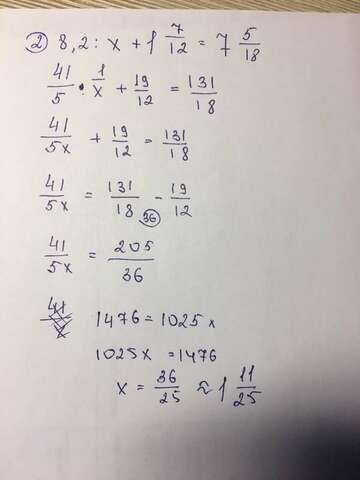 ② 8,2 : x + 1 7/12 = 7 5/18
41/5 : 1/x + 19/12 = 131/18
41/5x + 19/12 = 131/18
41/5x = 131/18 - 19/12
36
41/5x = 205/36
1476 = 1025x
1025x = 1476
x = 36/25 ≈ 1 11/25